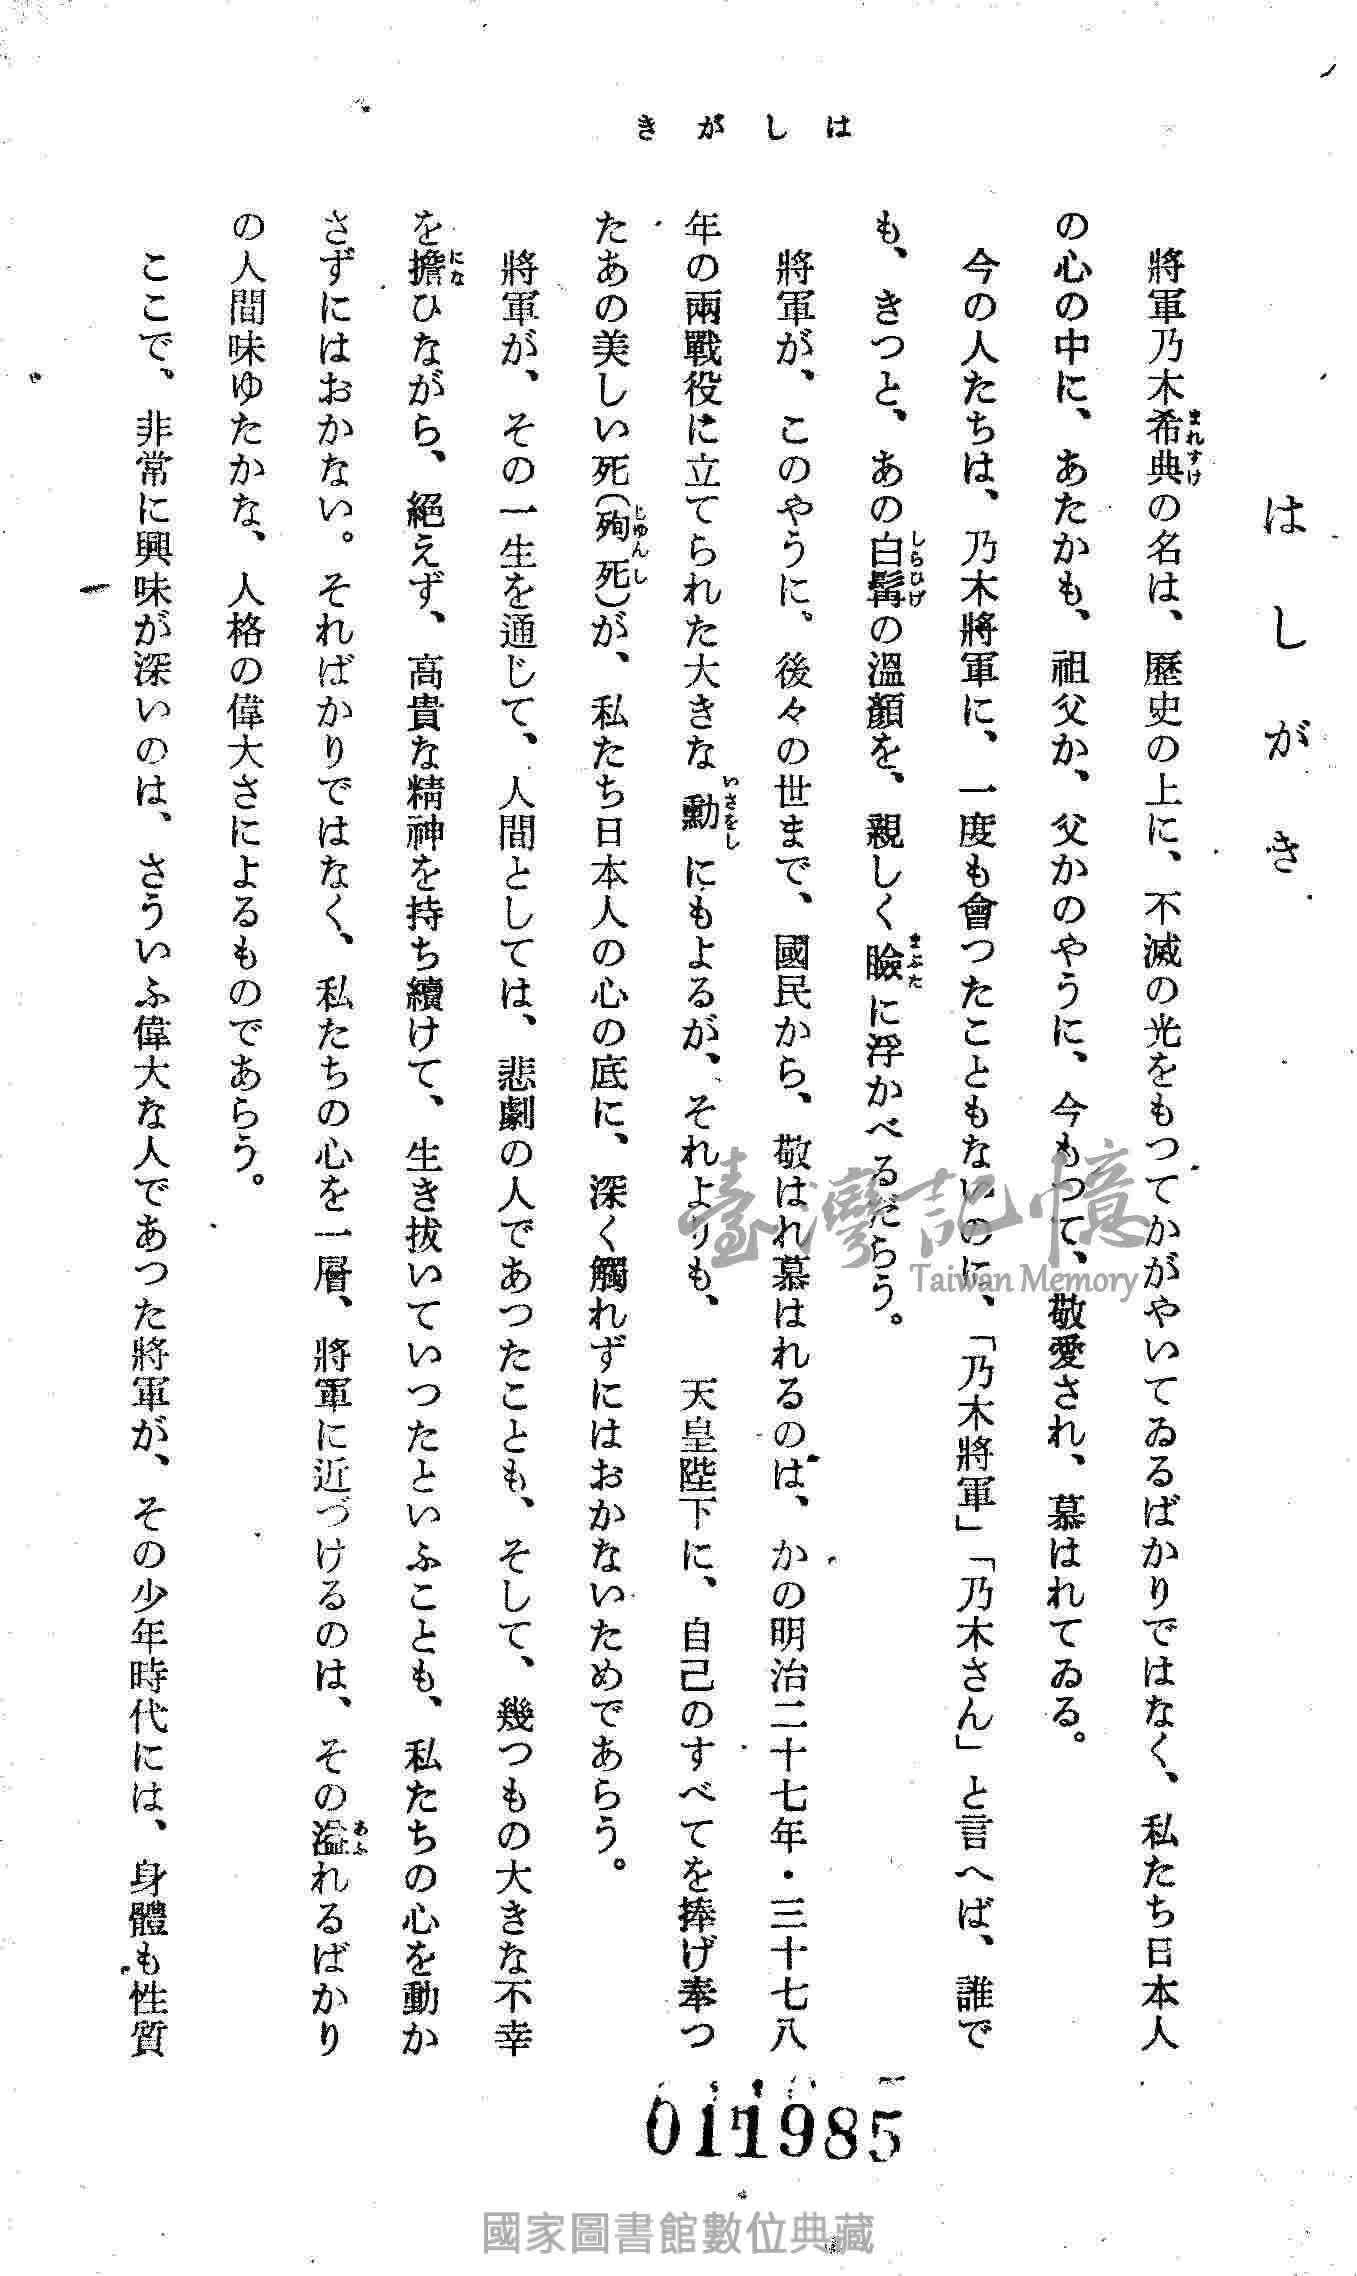 はしがき
はしがき
將軍乃木希典の名は、歷史の上に、不滅の光をもつてかがやいてゐるばかりではなく、私たち日本人
の心の中に、あたかも、祖父か、父かのやうに、今もつて、敬愛され、慕はれてゐる。
今の人たちは、乃木將軍に、一度も會つたこともないのに、「乃木將軍」「乃木さん」と言へば、誰で
も、きつと、あの白髯の溫顏を、親しく瞼に浮かべるだらう。
將軍が、このやうに。後々の世まで、國民から、敬はれ慕はれるのは、かの明治二十七年・三十七八
年の兩戰役に立てられた大きな勳にもよるが、それよりも、　天皇陛下に、自己のすべてを捧げ奉つ
たあの美しい死(殉死)が、私たち日本人の心の底に、深く觸れずにはおかないためであらう。
將軍が、その一生を通じて、人間としては、悲劇の人であつたことも、そして、幾つもの大きな不幸
を擔ひながら、絕えず、高貴な精神を持ち續けて、生き拔いていつたといふことも、私たちの心を動か
さずにはおかない。そればかりではなく、私たちの心を一層、將軍に近づけるのは、その溢れるばかり
の人間味ゆたかな、人格の偉大さによるものであらう。
ここで、非常に興味が深いのは、さういふ偉大な人であつた將軍が、その少年時代には、身體も性質
臺灣記憶
Taiwan Memory
011985
國家圖書館數位典藏